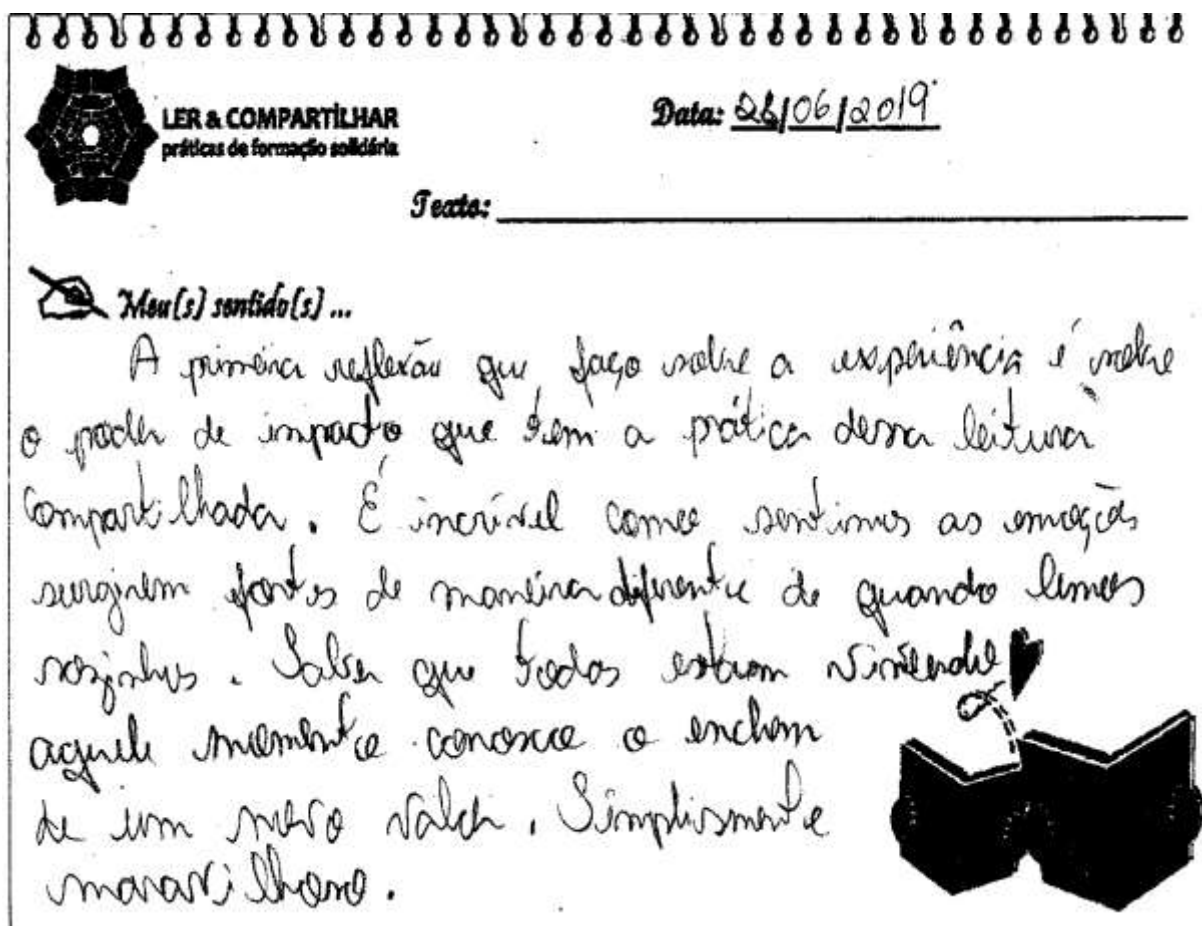 LER & COMPARTILHAR
práticas de formação solidária
Data: 28/06/2019
Texto:
Meu(s) sentido(s)...
A primeira reflexão que faço sobre a experiência é sobre
o poder de impacto que tem a prática dessa leitura
compartilhada. É incrível como sentimos as emoções
surgirem fortes de maneira diferente de quando lemos
sozinhos. Saber que todos estam vivendo
aquele momento conosco o enchem
de um novo valor. Simplismente
maravilhoso.